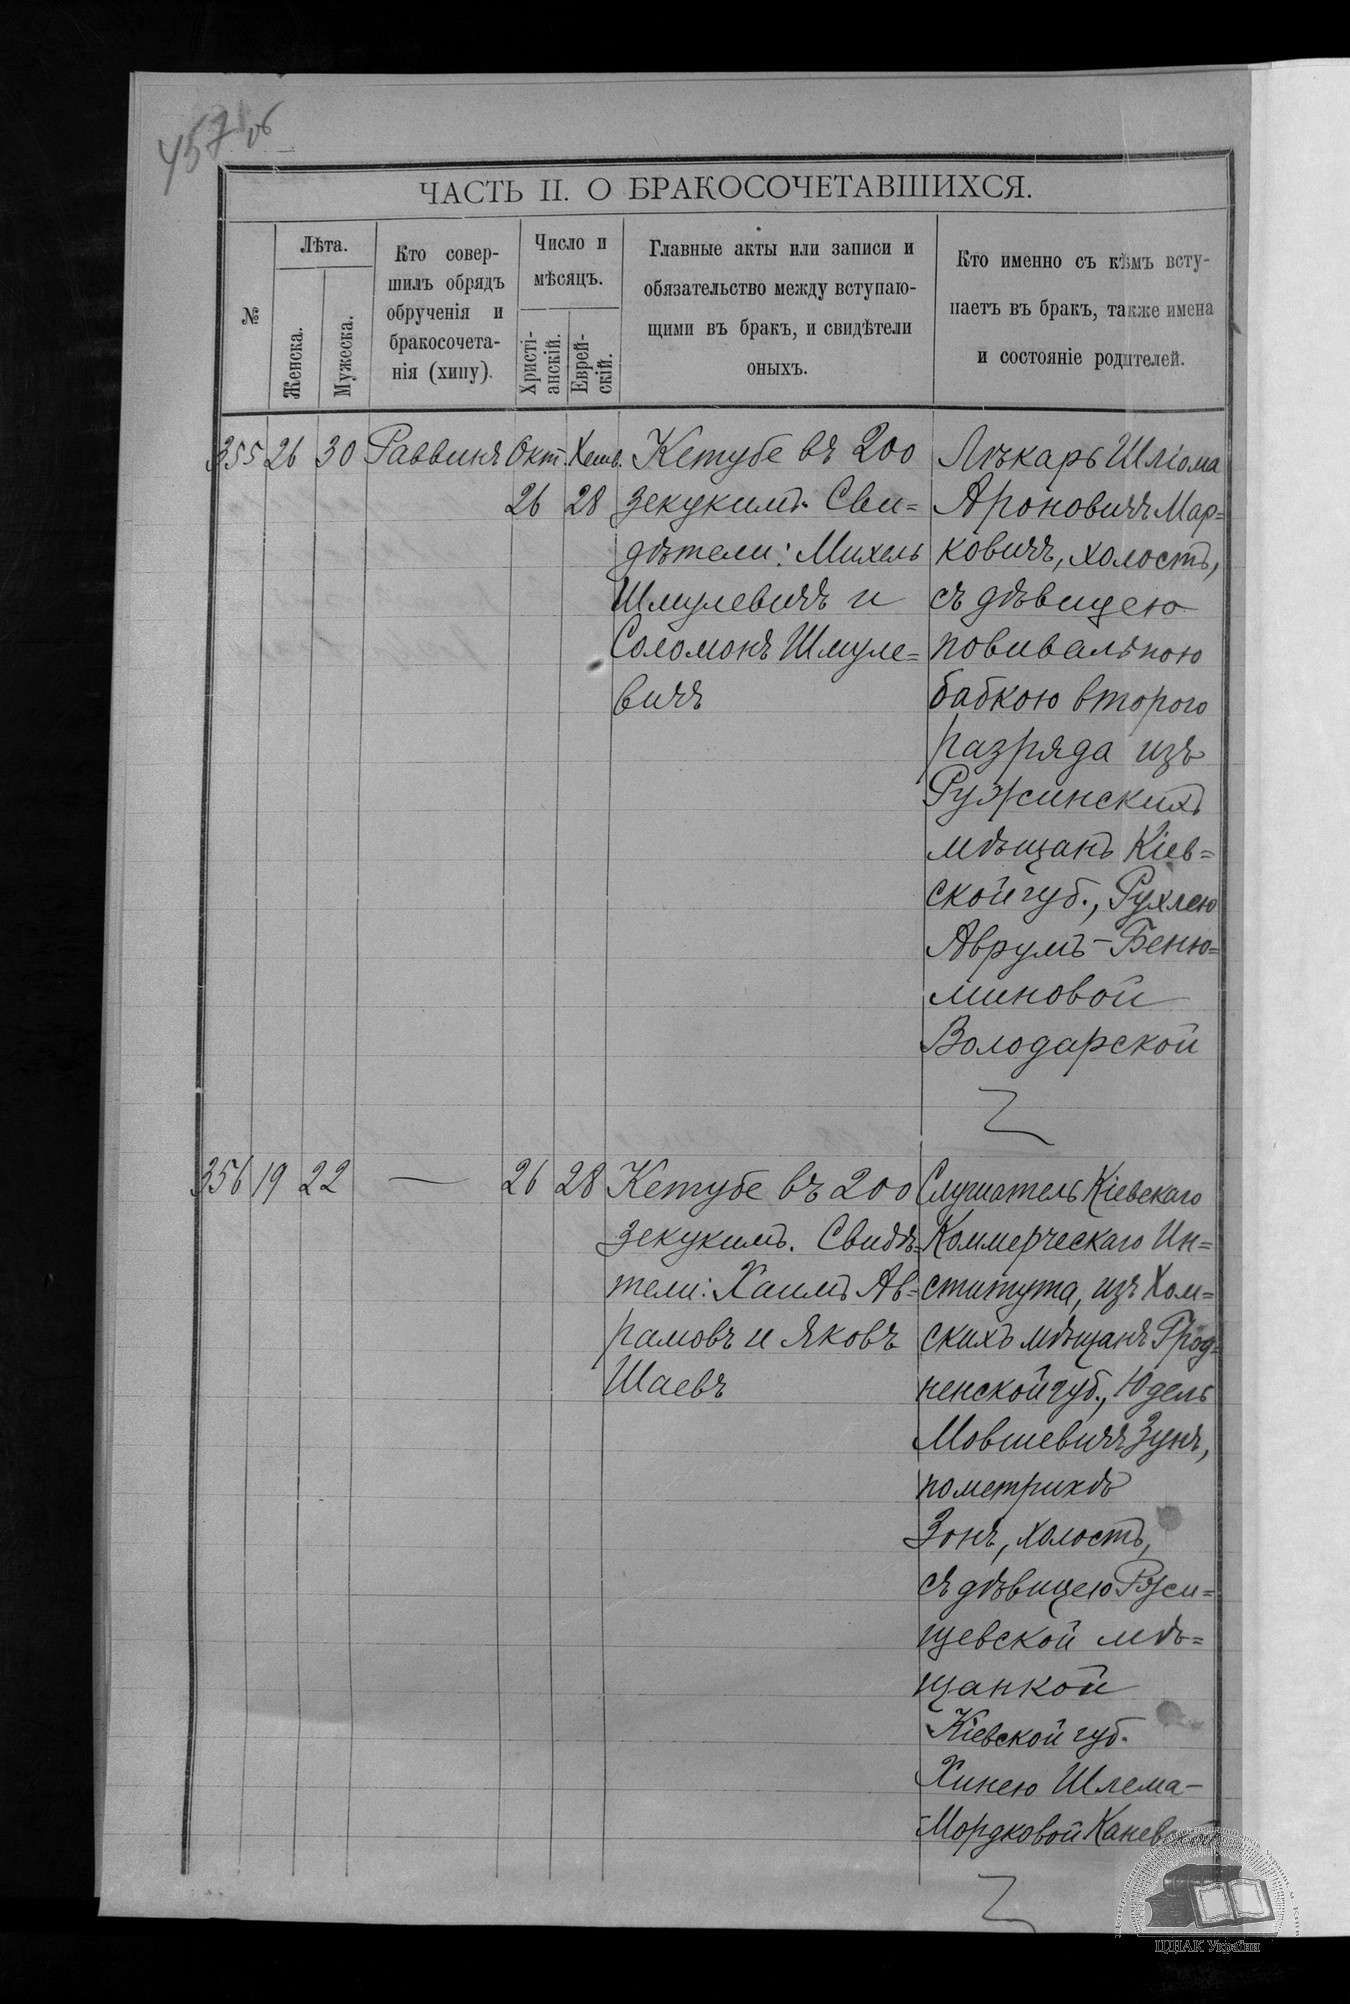 457 об
ЧАСТЬ II. О БРАКОСОЧЕТАВШИХСЯ.
№
Лѣта.
Женска.
Мужеска.
Кто совер-
шилъ обрядъ
обрученія и
бракосочета-
нія (хипу).
Число и
мѣсяцъ.
Христі-
анскій.
Еврей-
скій.
Главные акты или записи и
обязательство между вступаю-
щими въ бракъ, и свидѣтели
оныхъ.
Кто именно съ кѣмъ всту-
паетъ въ бракъ, также имена
и состояніе родителей.
355 26 30 Раввинъ Окт. Хешв.
26 28
Кетубе въ 200
зекукимъ. Сви=
дѣтели: Михель
Шмулевичъ и
Соломонъ Шмуле=
вичъ
Лѣкарь Шліома
Ароновичъ Мар=
ковичъ, холостъ,
съ дѣвицею
повивальною
бабкою второго
разряда изъ
Ружинскихъ
мѣщанъ Кіев=
ской губ., Рухлею
Аврумъ-Беню=
миновой
Володарской
356 19 22 — 26 28
Кетубе въ 200
зекукимъ. Свидѣ=
тели: Хаимъ Ав=
рамовъ и Яковъ
Шаевъ
Слушатель Кіевскаго
Коммерческаго Ин=
ститута, изъ Хом=
скихъ мѣщанъ Грод=
ненской губ., Юдель
Мовшевичъ Зунъ,
по метрикѣ
Зонъ, холостъ,
съ дѣвицею Ржи=
щевской мѣ=
щанкой
Кіевской губ.
Хинею Шлема-
Мордковой Каневской
ЦДІАК України